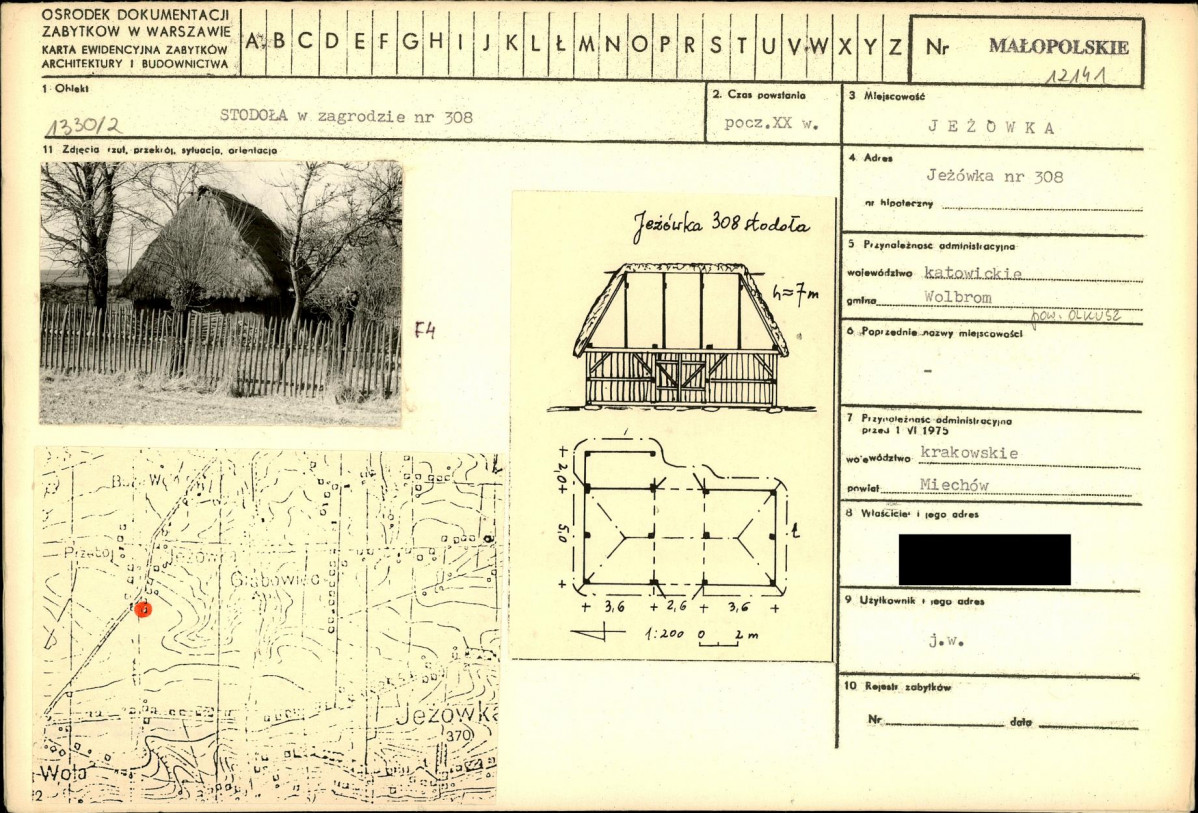 OSRODEK DOKUMENTACJI
ZABYTKOW W WARSZAWIE
KARTA EWIDENCYJNA ZABYTKÓW
ARCHITEKTURY I BUDOWNICTWA
A B C D E F G H I J K L Ł M N O P R S T U V W X Y Z
Nr MAŁOPOLSKIE
12141
1 Obiekt
1330/2 STODOŁA w zagrodzie nr 308
2. Czas powstania
pocz.XX w.
3 Miejscowość
JEŻÓWKA
4 Adres
Jeżówka nr 308
nr hipoteczny
5 Przynależność administracyjna
województwo katowickie
gmina Wolbrom
pow. OLKUSZ
6 Poprzednie nazwy miejscowości
-
7 Przynależność administracyjna
przed 1 VI 1975
województwo krakowskie
powiat Miechów
8 Właściciel i jego adres
9 Użytkownik i jego adres
j.w.
10 Rejestr zabytków
Nr data
11 Zdjęcia rzut, przekrój, sytuacja, orientacja
F4
Jeżówka 308 stodoła
h=7m
2,0
5,0
3,6 2,6 3,6
1:200 0 2 m
Przebój
Jeżówka
Grabowiec
Jeżówka
370
Wola